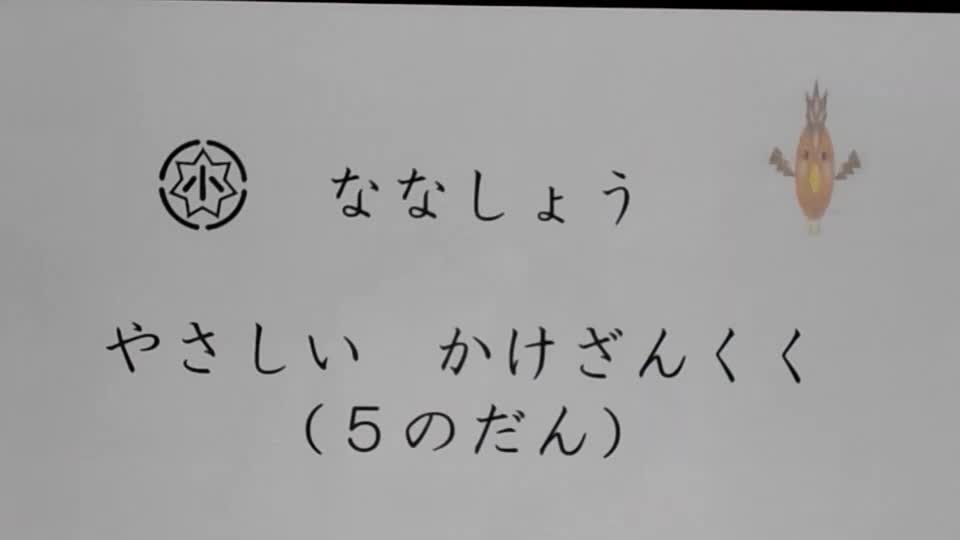 小 ななしょう
やさしい　かけざんくく
（５のだん）